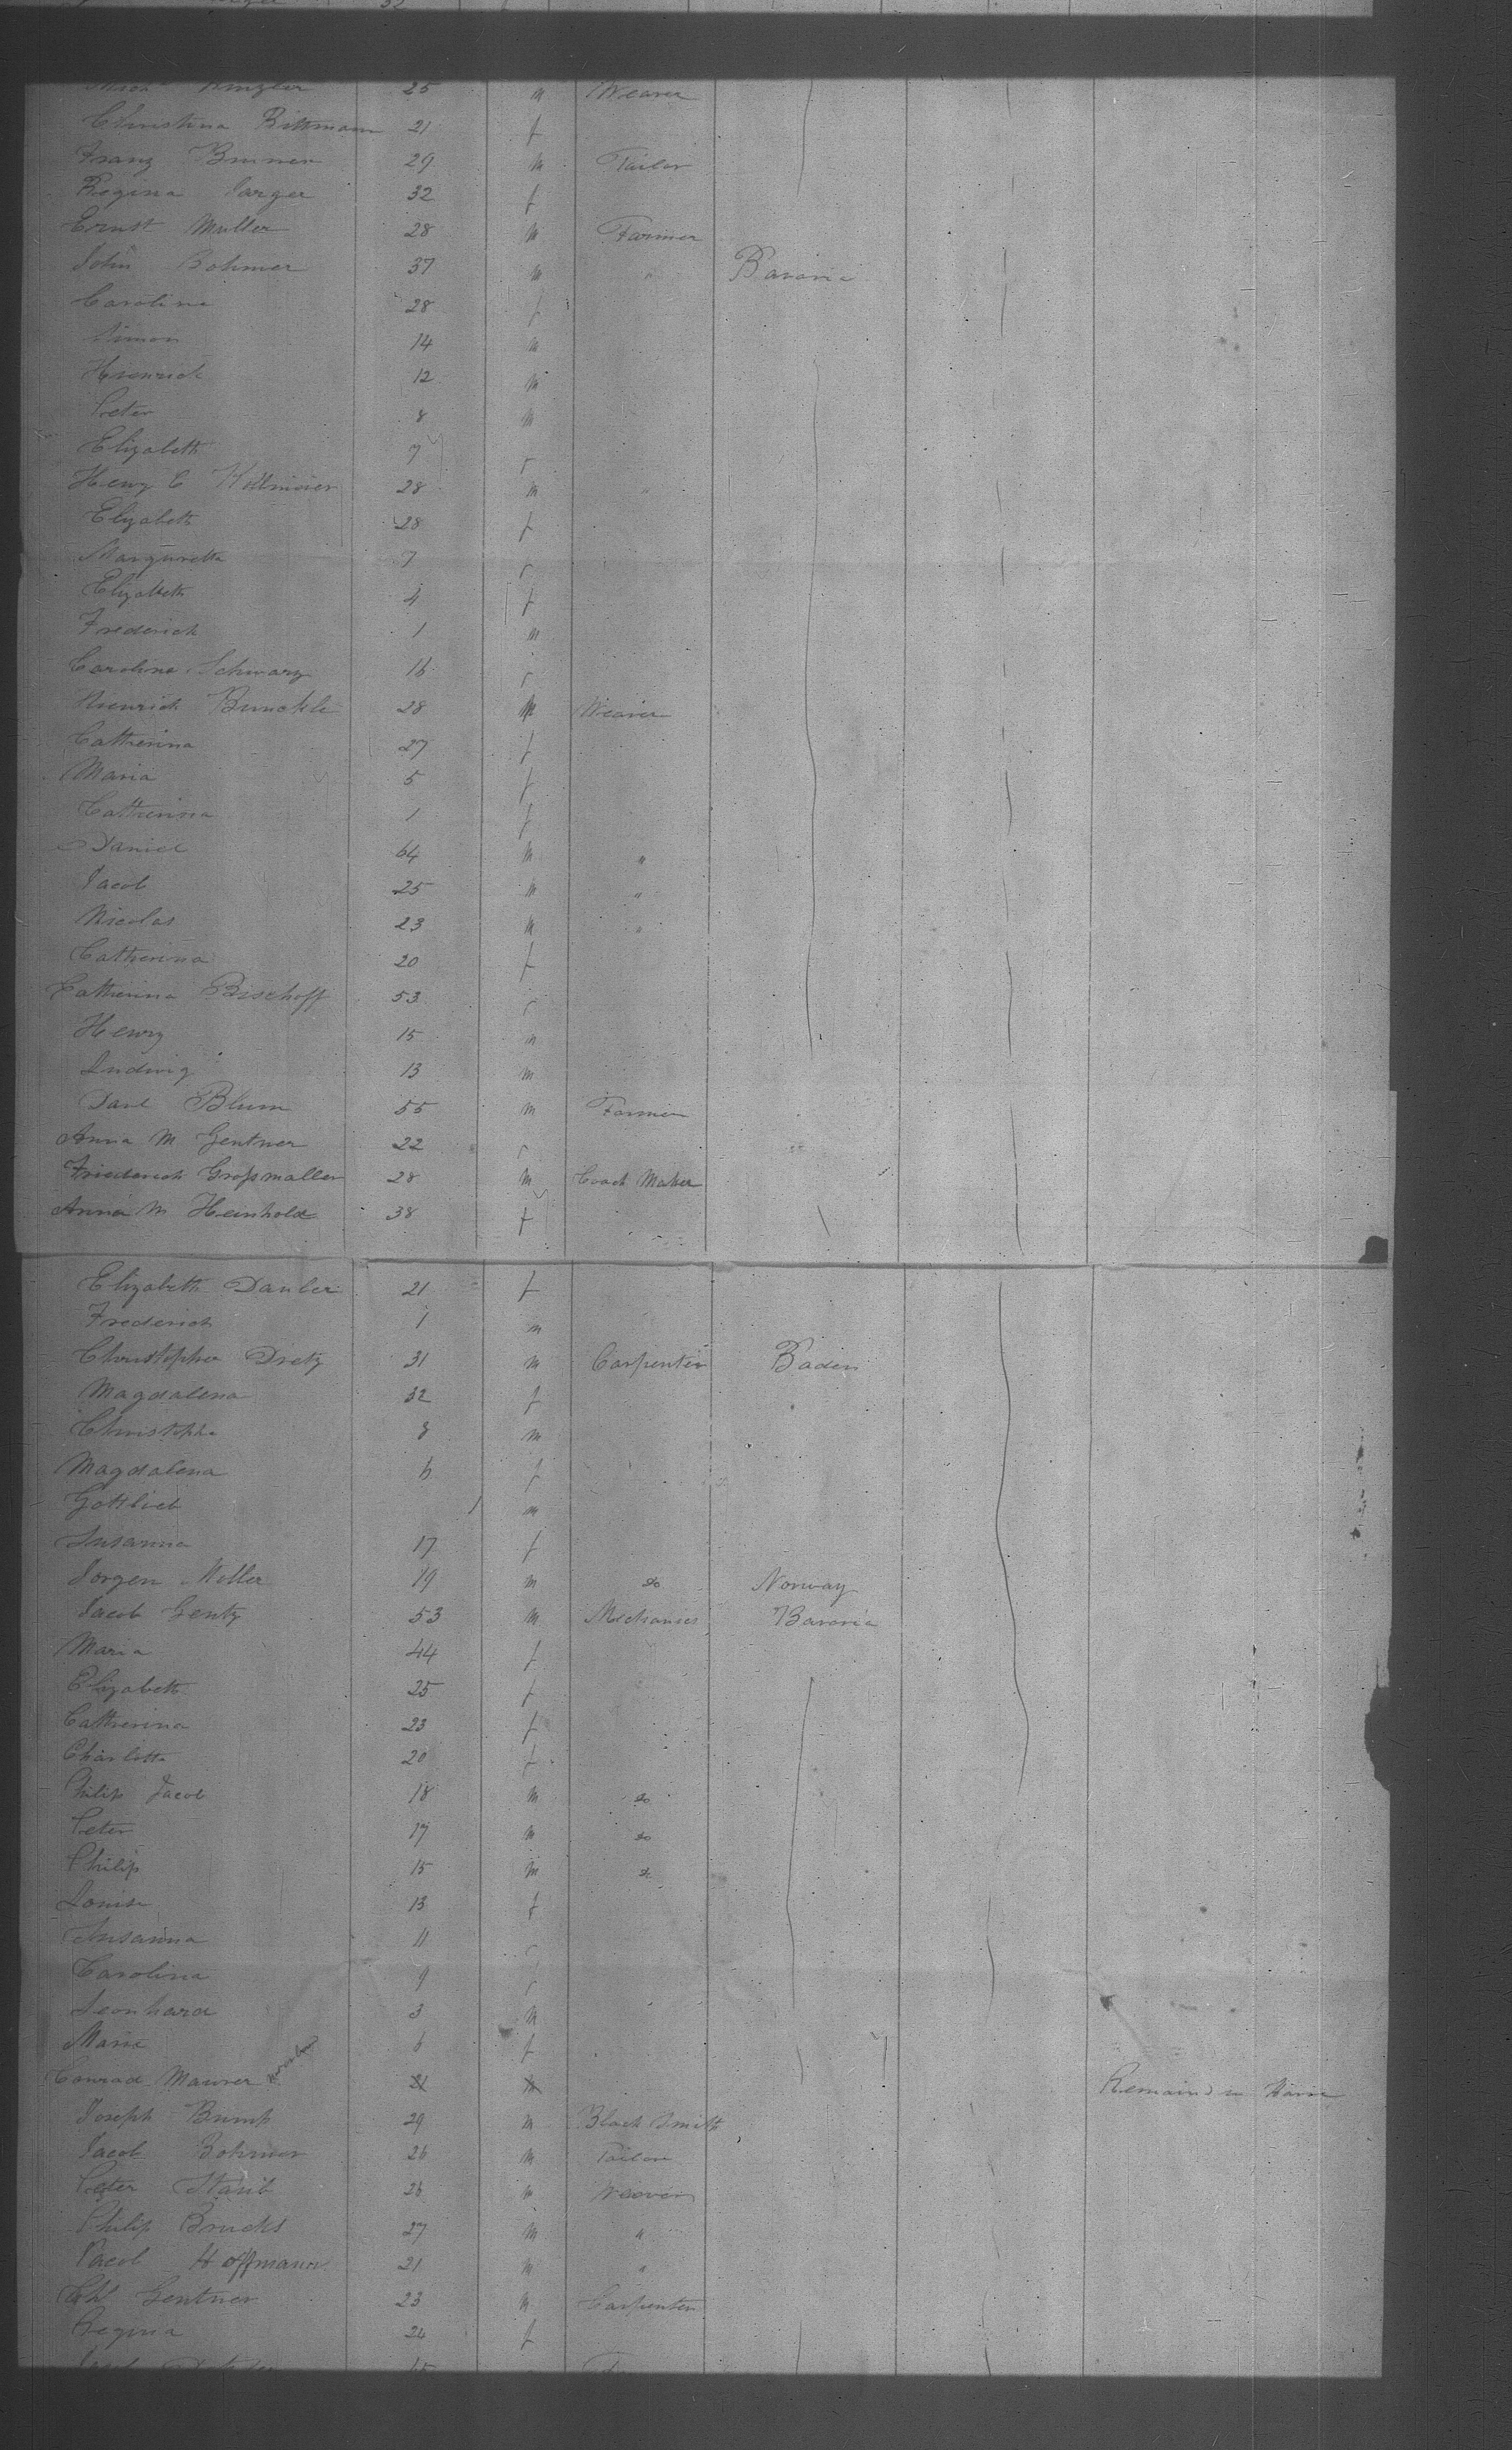 25 m Weaver
Christina Rittmann 21 f
Franz Brunner 29 m Tailor
Regina Sarger 32 f
Ernst Muller 28 m Farmer
John Bohmer 37 m " Bavaria
Carolina 28 f
Simon 14 m
Hienrich 12 m
Peter 8 m
Elizabeth 7 f
Henry C 28 m "
Elizabeth 28 f
Margaretta 7 f
Elizabeth 4 f
Frederich 1 m
Caroline Schwarz 16 f
Hienrich Brunckle 28 m Weaver
Catherina 27 f
Maria 5 f
Catherina 1 f
Daniel 64 m "
Jacob 25 m "
Nicolas 23 m "
Catherina 20 f
Catherina Bischoff 53 f
Henry 15 m
Ludwig 13 m
Blum 55 m Farmer
Anna M Gentner 22 f
Friederich Großmaller 28 m Coach Maker
Anna M Heinhold 38 f
Elizabeth Dauler 21 f
Frederich 1 m
Christopher Dretz 31 m Carpenter Baden
Magdalena 32 f
Christophe 8 m
Magdalena 6 f
Gottlieb 1 m
Susanna 17 f
Jorgen Moller 19 m do Norway
Jacob Gentz 53 m Mechanics Bavaria
Maria 44 f
Elizabeth 25 f
Catherina 23 f
Charlotte 20 f
Philip Jacob 18 m do
Peter 17 m do
Philip 15 m do
Louise 13 f
Susanna 11 f
Carolina 9 f
Leonhard 3 m
Maria 6 f
Conrad Maurer 21 m Remaind in
Joseph Bump 29 m Black Smith
Jacob Bohmer 26 m Tailor
Peter Staub 26 m Weaver
Philip Brucks 27 m "
Jacob Hoffmann 21 m "
Gentner 23 m Carpenter
Regina 24 f